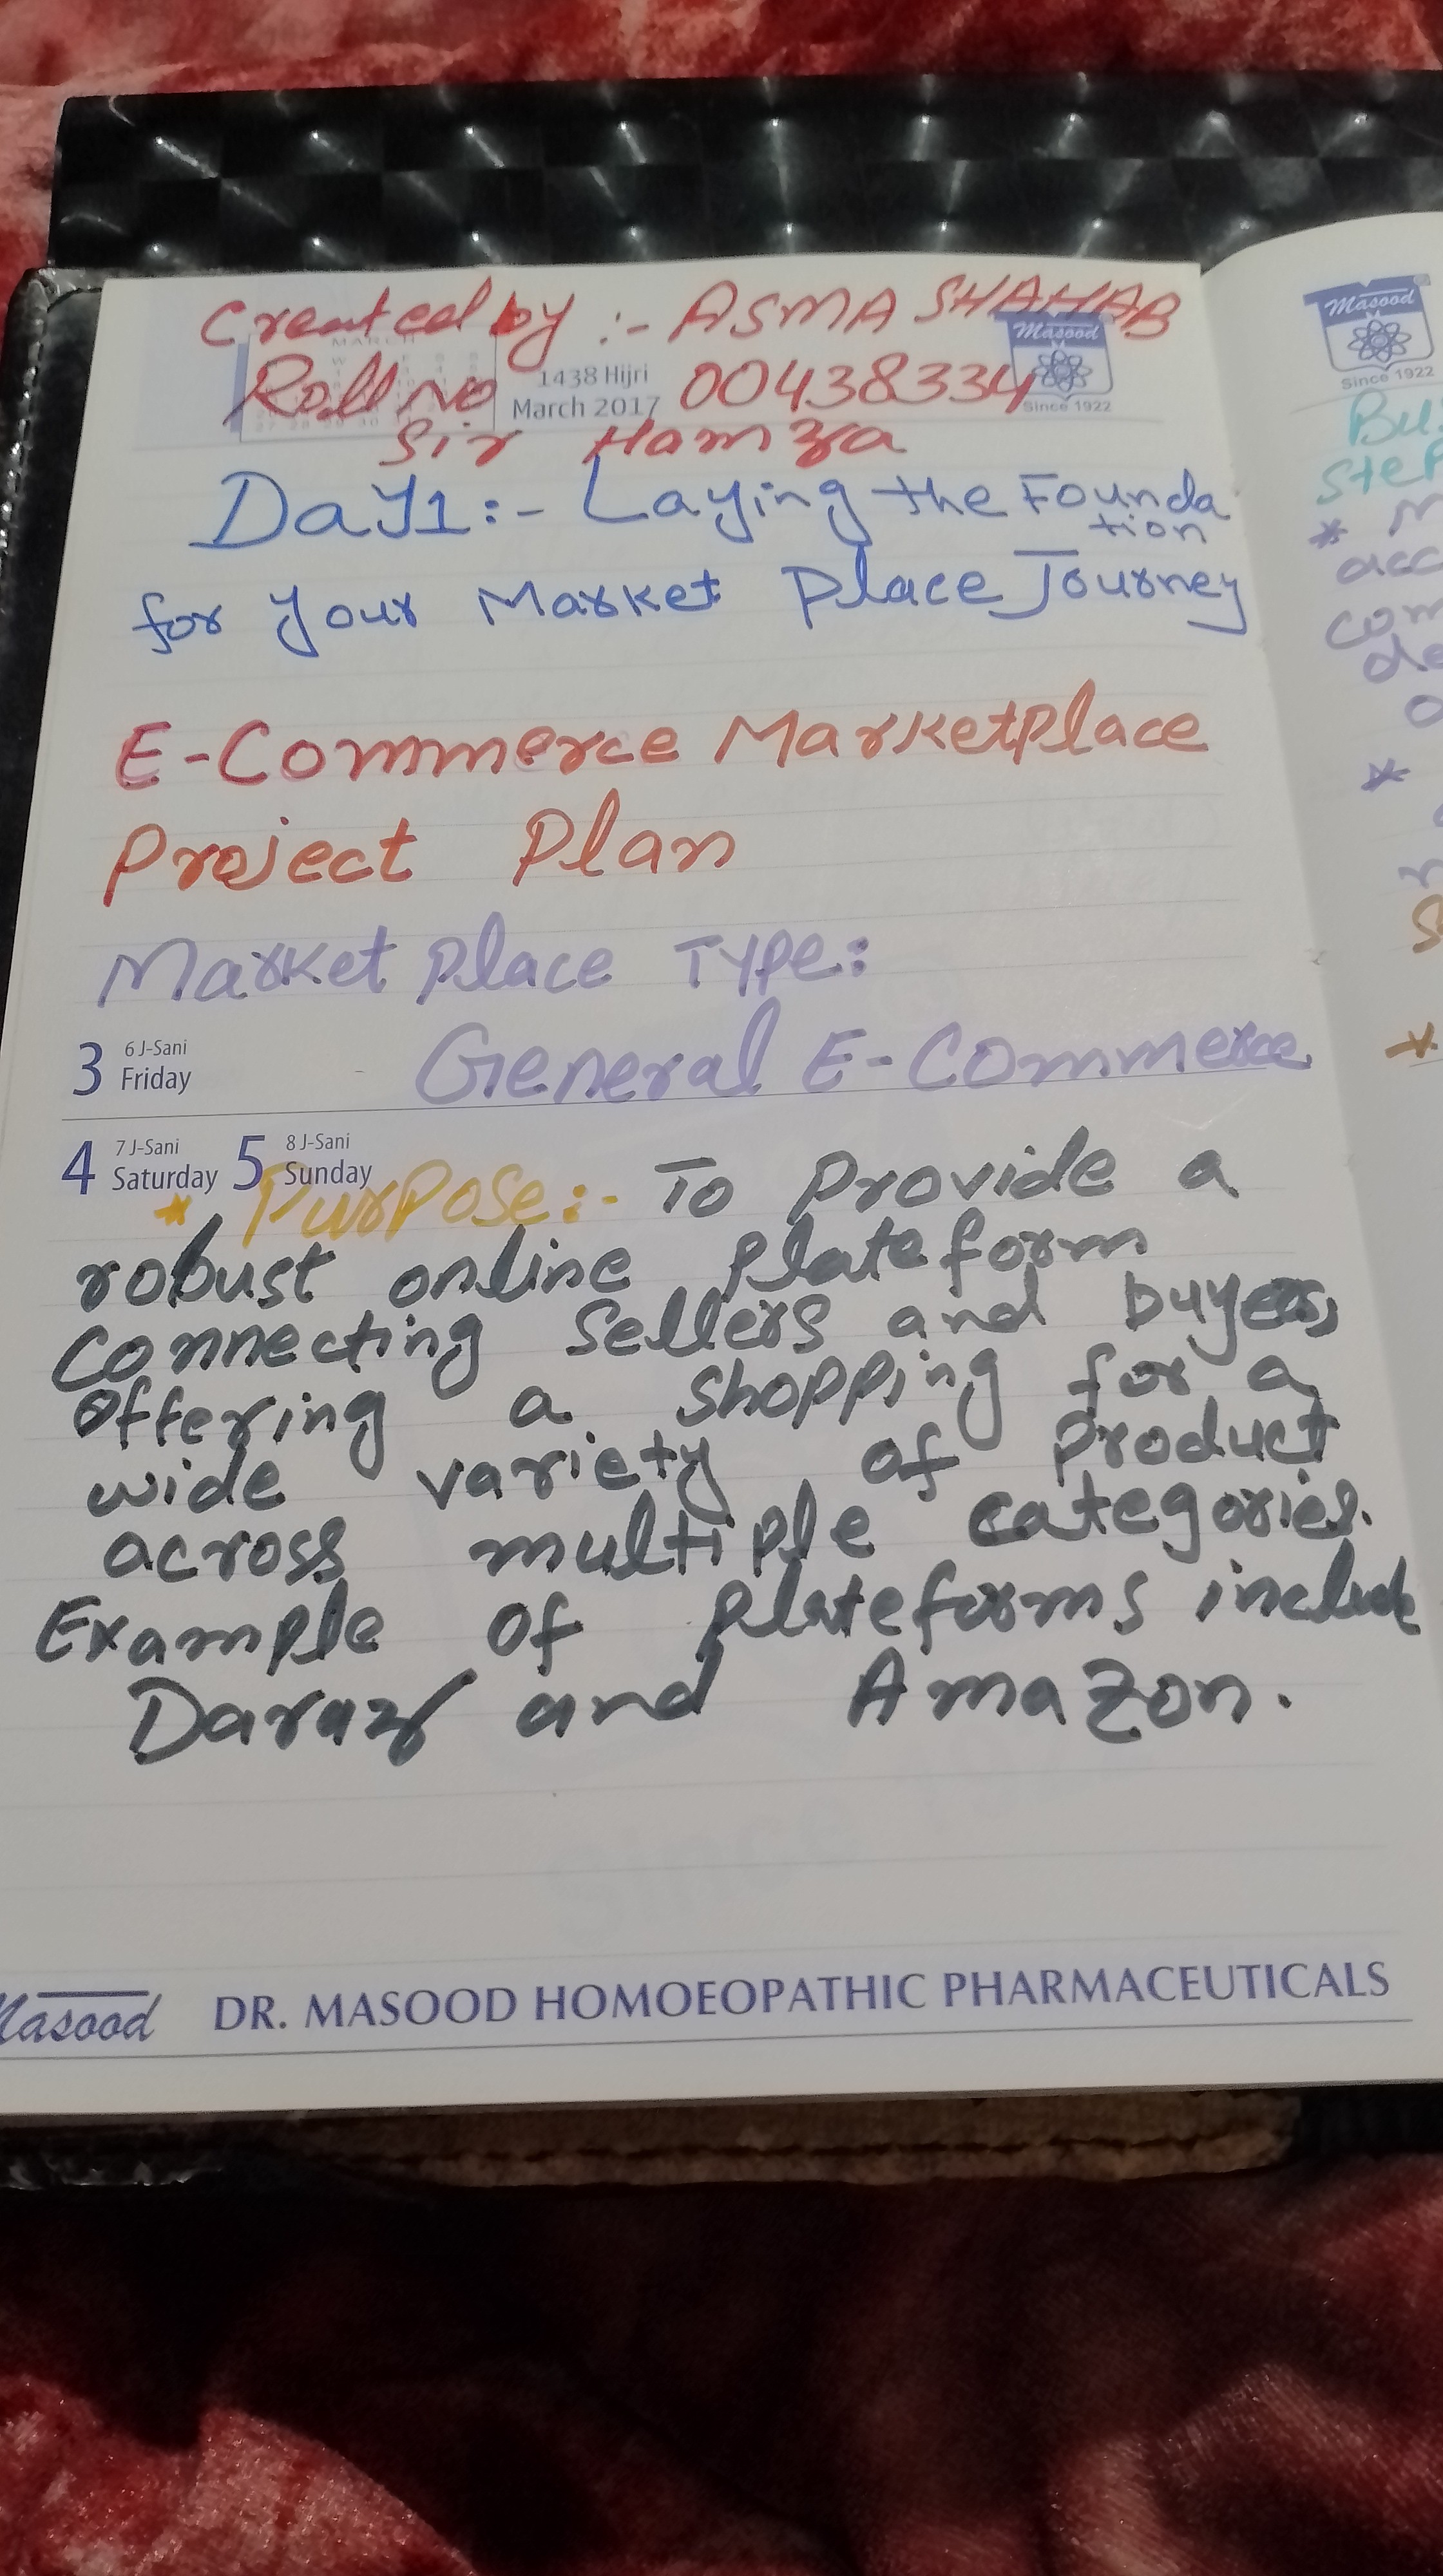 Created by :- ASMA SHAHAB
Masood
Roll No 00438334
1438 Hijri
March 2017
Since 1922
Sir Hamza
Day1:- Laying the Founda
tion
for your Market Place Journey
E-Commerce Marketplace
Project Plan
Market place Type:
3 6 J-Sani Friday
General E-Commerce
4 7 J-Sani Saturday 5 8 J-Sani Sunday
* Purpose:- To provide a
robust online plateform
connecting sellers and buyers,
offering a shopping for a
wide variety of product
across multiple categories.
Example of plateforms include
Daraz and Amazon.
Masood DR. MASOOD HOMOEOPATHIC PHARMACEUTICALS
Masood
Since 1922